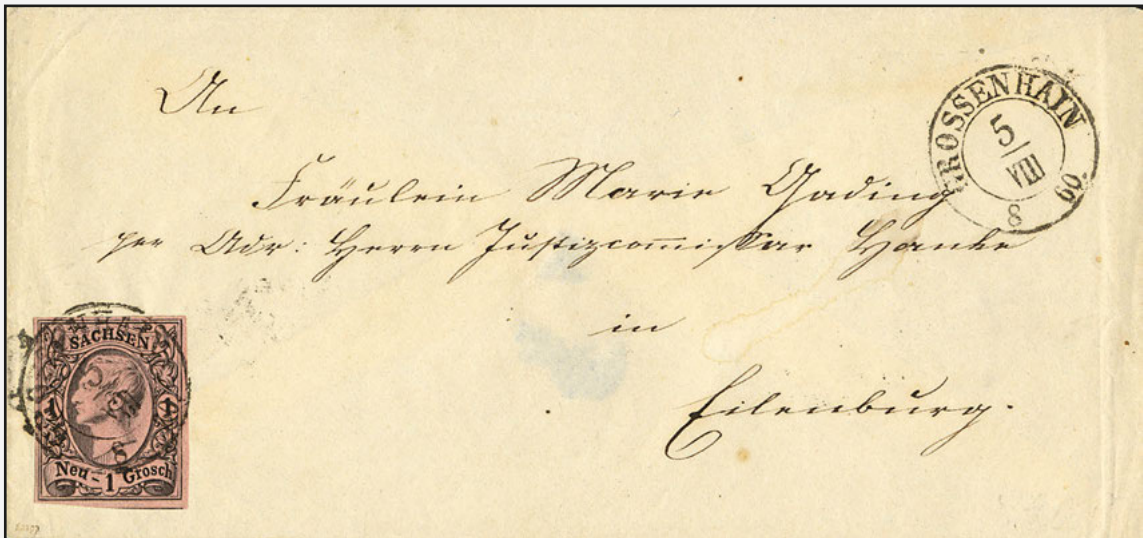 An
GROSSENHAIN
5
VIII
60.
8
Fräulein Marie Gading
per Adr: Herrn Justizcommissar Hanke
in
Eilenburg.
SACHSEN
1 1
Neu-1 Grosch